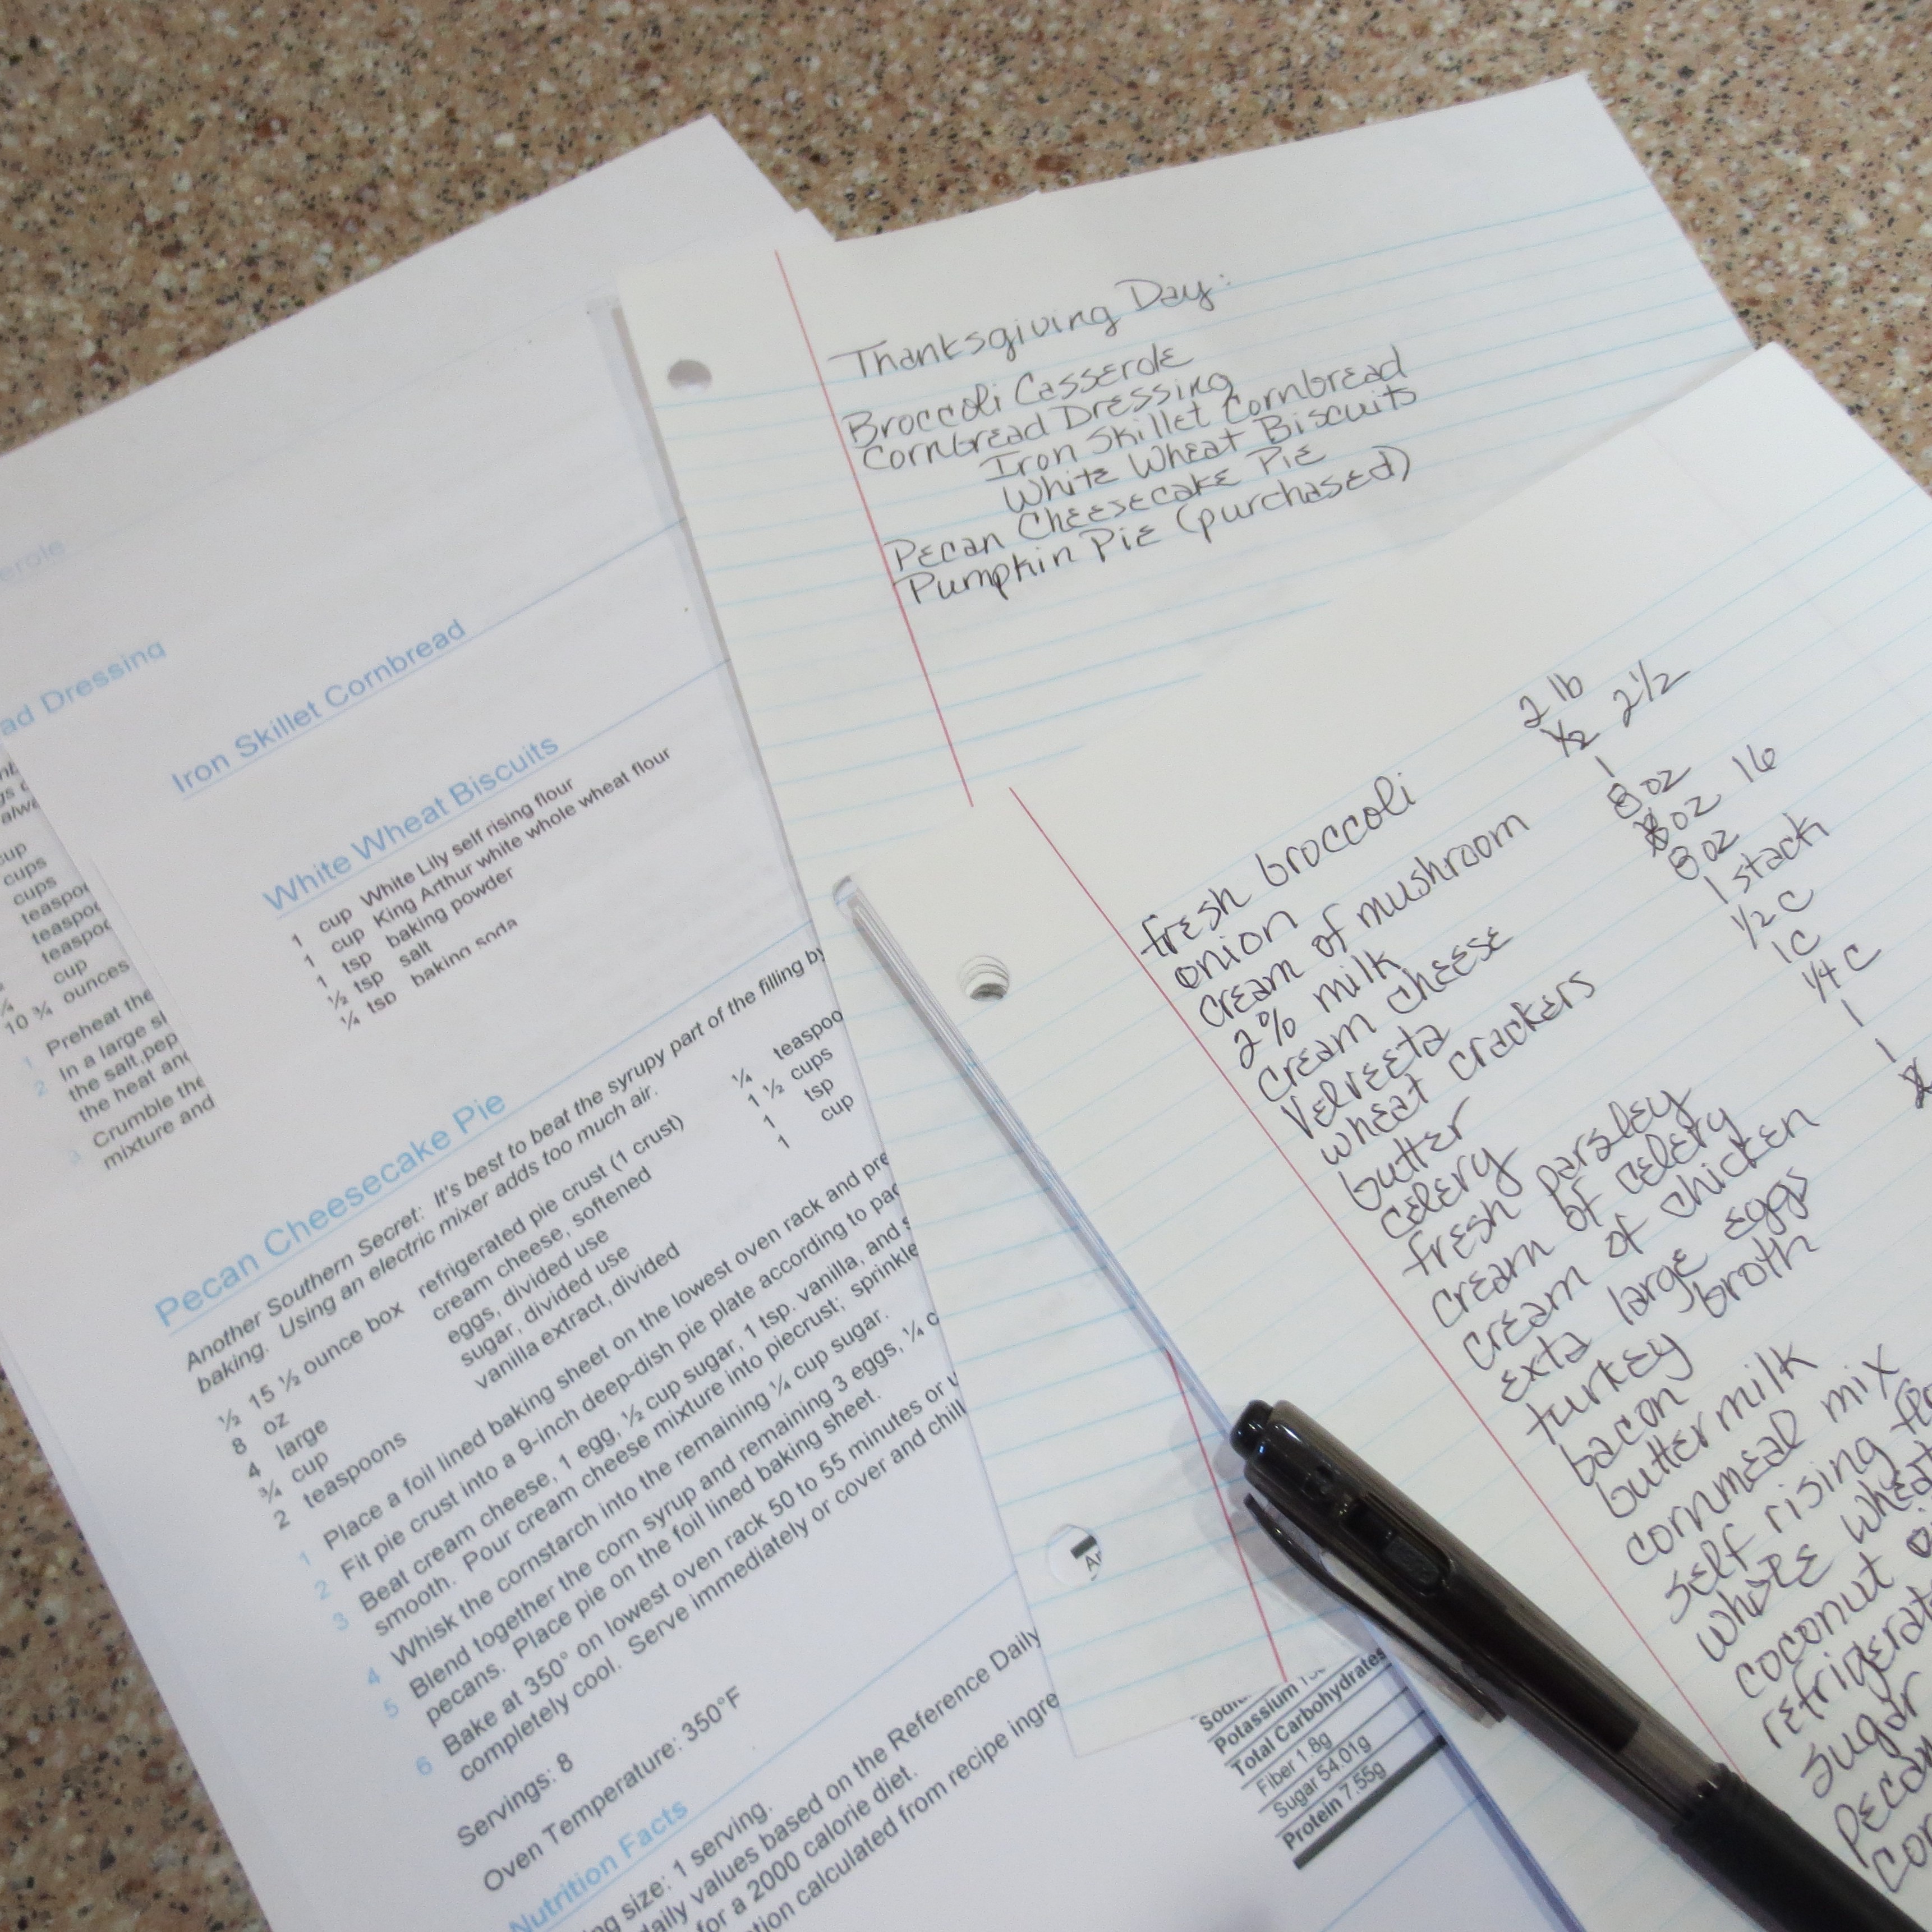 Thanksgiving Day:
Broccoli Casserole
Cornbread Dressing
Iron Skillet Cornbread
White Wheat Biscuits
Pecan Cheesecake Pie
Pumpkin Pie (purchased)
fresh broccoli 2 lb
onion 1/2 2 1/2
cream of mushroom 1
2% milk 8 oz
cream cheese 8 oz 16
Velveeta 8 oz
wheat crackers 1 stack
butter 1/2 C
celery 1 C
fresh parsley 1/4 C
cream of celery 1
cream of chicken 1
exta large eggs
turkey broth
bacon
buttermilk
cornmeal mix
self rising
white wheat
coconut
sugar
erole
ad Dressing
cup
cups
cups
cup
10 ¾ ounces
1 Preheat the
2 In a large
the salt, pep
the heat and
3 Crumble the
mixture and
Iron Skillet Cornbread
White Wheat Biscuits
1 cup White Lily self rising flour
1 cup King Arthur white whole wheat flour
1 tsp baking powder
½ tsp salt
¼ tsp baking soda
Pecan Cheesecake Pie
Another Southern Secret: It's best to beat the syrupy part of the filling by
baking. Using an electric mixer adds too much air.
½ 15 ½ ounce box refrigerated pie crust (1 crust)
8 oz cream cheese, softened
4 large eggs, divided use
¾ cup sugar, divided use
2 teaspoons vanilla extract, divided
¼ teaspoo
1 ½ cups
1 tsp
1 cup
1 Place a foil lined baking sheet on the lowest oven rack and pre
2 Fit pie crust into a 9-inch deep-dish pie plate according to pac
3 Beat cream cheese, 1 egg, ½ cup sugar, 1 tsp. vanilla, and s
smooth. Pour cream cheese mixture into piecrust; sprinkle
4 Whisk the cornstarch into the remaining ¼ cup sugar.
5 Blend together the corn syrup and remaining 3 eggs, ¼ c
pecans. Place pie on the foil lined baking sheet.
6 Bake at 350° on lowest oven rack 50 to 55 minutes or u
completely cool. Serve immediately or cover and chill
Servings: 8
Oven Temperature: 350°F
Nutrition Facts
ng size: 1 serving.
daily values based on the Reference Daily
for a 2000 calorie diet.
tion calculated from recipe ingre
Potassium
Total Carbohydrates
Fiber 1.8g
Sugar 54.01g
Protein 7.55g